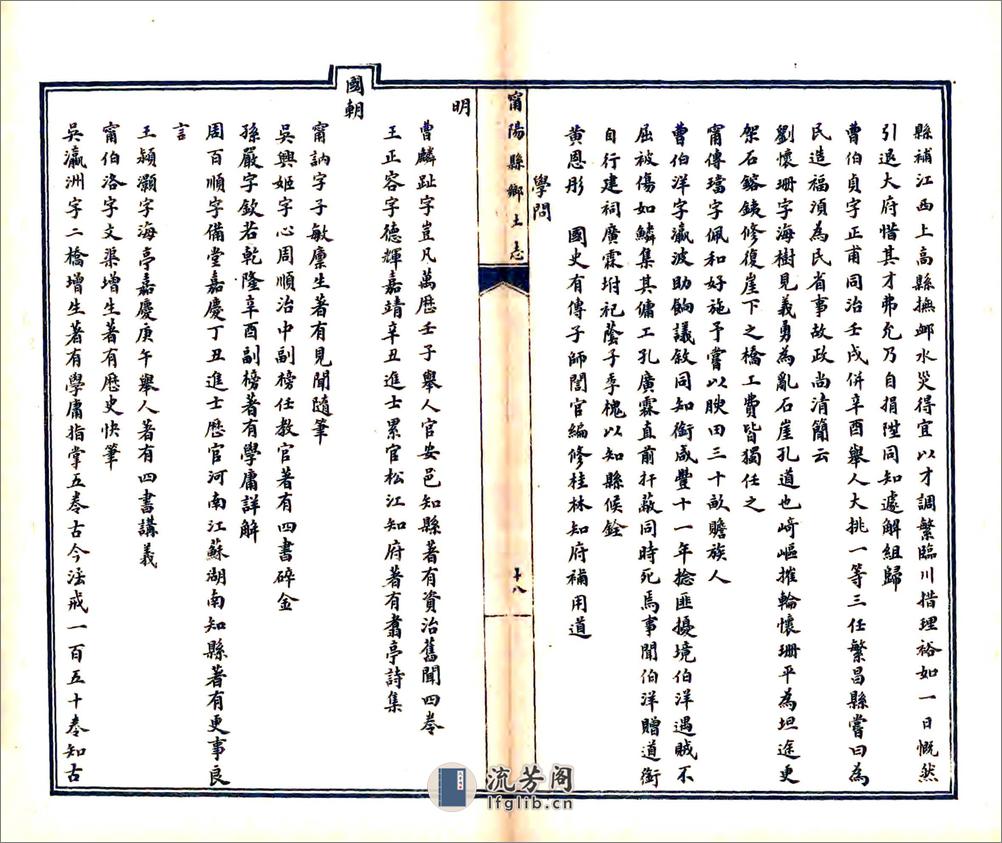 縣補江西上高縣撫卹水災得宜以才調繁臨川措理裕如一日慨然
引退大府惜其才弗允乃自捐陞同知遽解組歸
曹伯貞字正甫同治壬戌併辛酉舉人大挑一等三任繁昌縣嘗曰為
民造福須為民省事故政尚清簡云
劉懷珊字海樹見義勇為亂石崖孔道也崎嶇摧輪懷珊平為坦途更
架石鎔銕修復崖下之橋工費皆獨任之
甯傳璫字佩和好施予嘗以腴田三十畝贍族人
曹伯洋字瀛波助餉議敘同知銜咸豐十一年捻匪擾境伯洋遇賊不
屈被傷如鱗集其傭工孔廣霖直前扞蔽同時死焉事聞伯洋贈道銜
自行建祠廣霖坿祀蔭子季槐以知縣候銓
黄恩彤 國史有傳子師誾官編修桂林知府補用道
學問
甯陽縣鄉土志
十八
明
曹麟趾字豈凡萬歷壬子舉人官安邑知縣著有資治舊聞四卷
王正容字德輝嘉靖辛丑進士累官松江知府著有翥亭詩集
國朝
甯訥字子敏廩生著有見聞隨筆
吳興姬字心周順治中副榜任教官著有四書碎金
孫嚴字欽若乾隆辛酉副榜著有學庸詳解
周百順字備堂嘉慶丁丑進士歷官河南江蘇湖南知縣著有更事良
言
王潁灝字海亭嘉慶庚午舉人著有四書講義
甯伯洛字文渠增生著有歷史快筆
吳瀛洲字二橋增生著有學庸指掌五卷古今法戒一百五十卷知古
流芳阁
lfglib.cn